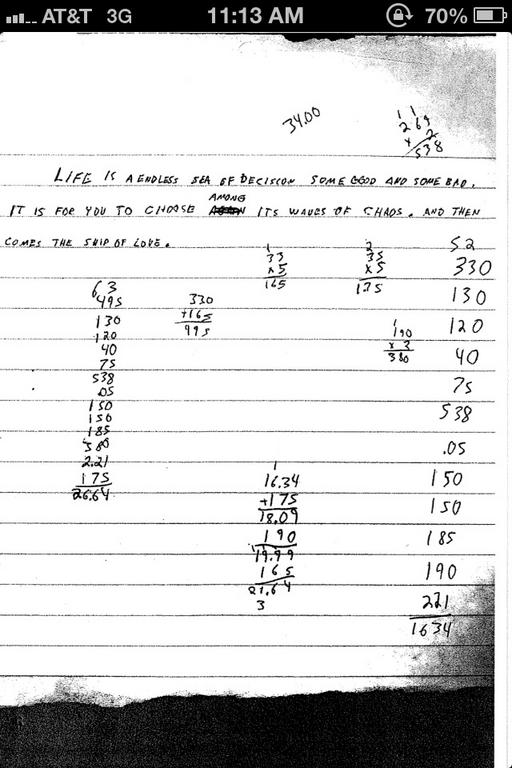 AT&T 3G 11:13 AM 70%
34.00
1 1
269
x 2
538
LIFE IS A ENDLESS SEA OF DECISION SOME GOOD AND SOME BAD.
IT IS FOR YOU TO CHOOSE AMONG ITS WAVES OF CHAOS. AND THEN
COMES THE SHIP OF LOVE.
1
33
x5
165
2
35
x5
175
52
330
130
120
40
75
538
.05
150
150
185
190
221
1634
63
495
130
120
40
75
538
.05
150
150
185
380
2.21
175
26.64
330
+165
495
1
190
x 2
380
1
16.34
+175
18.09
190
19.99
165
21.64
3